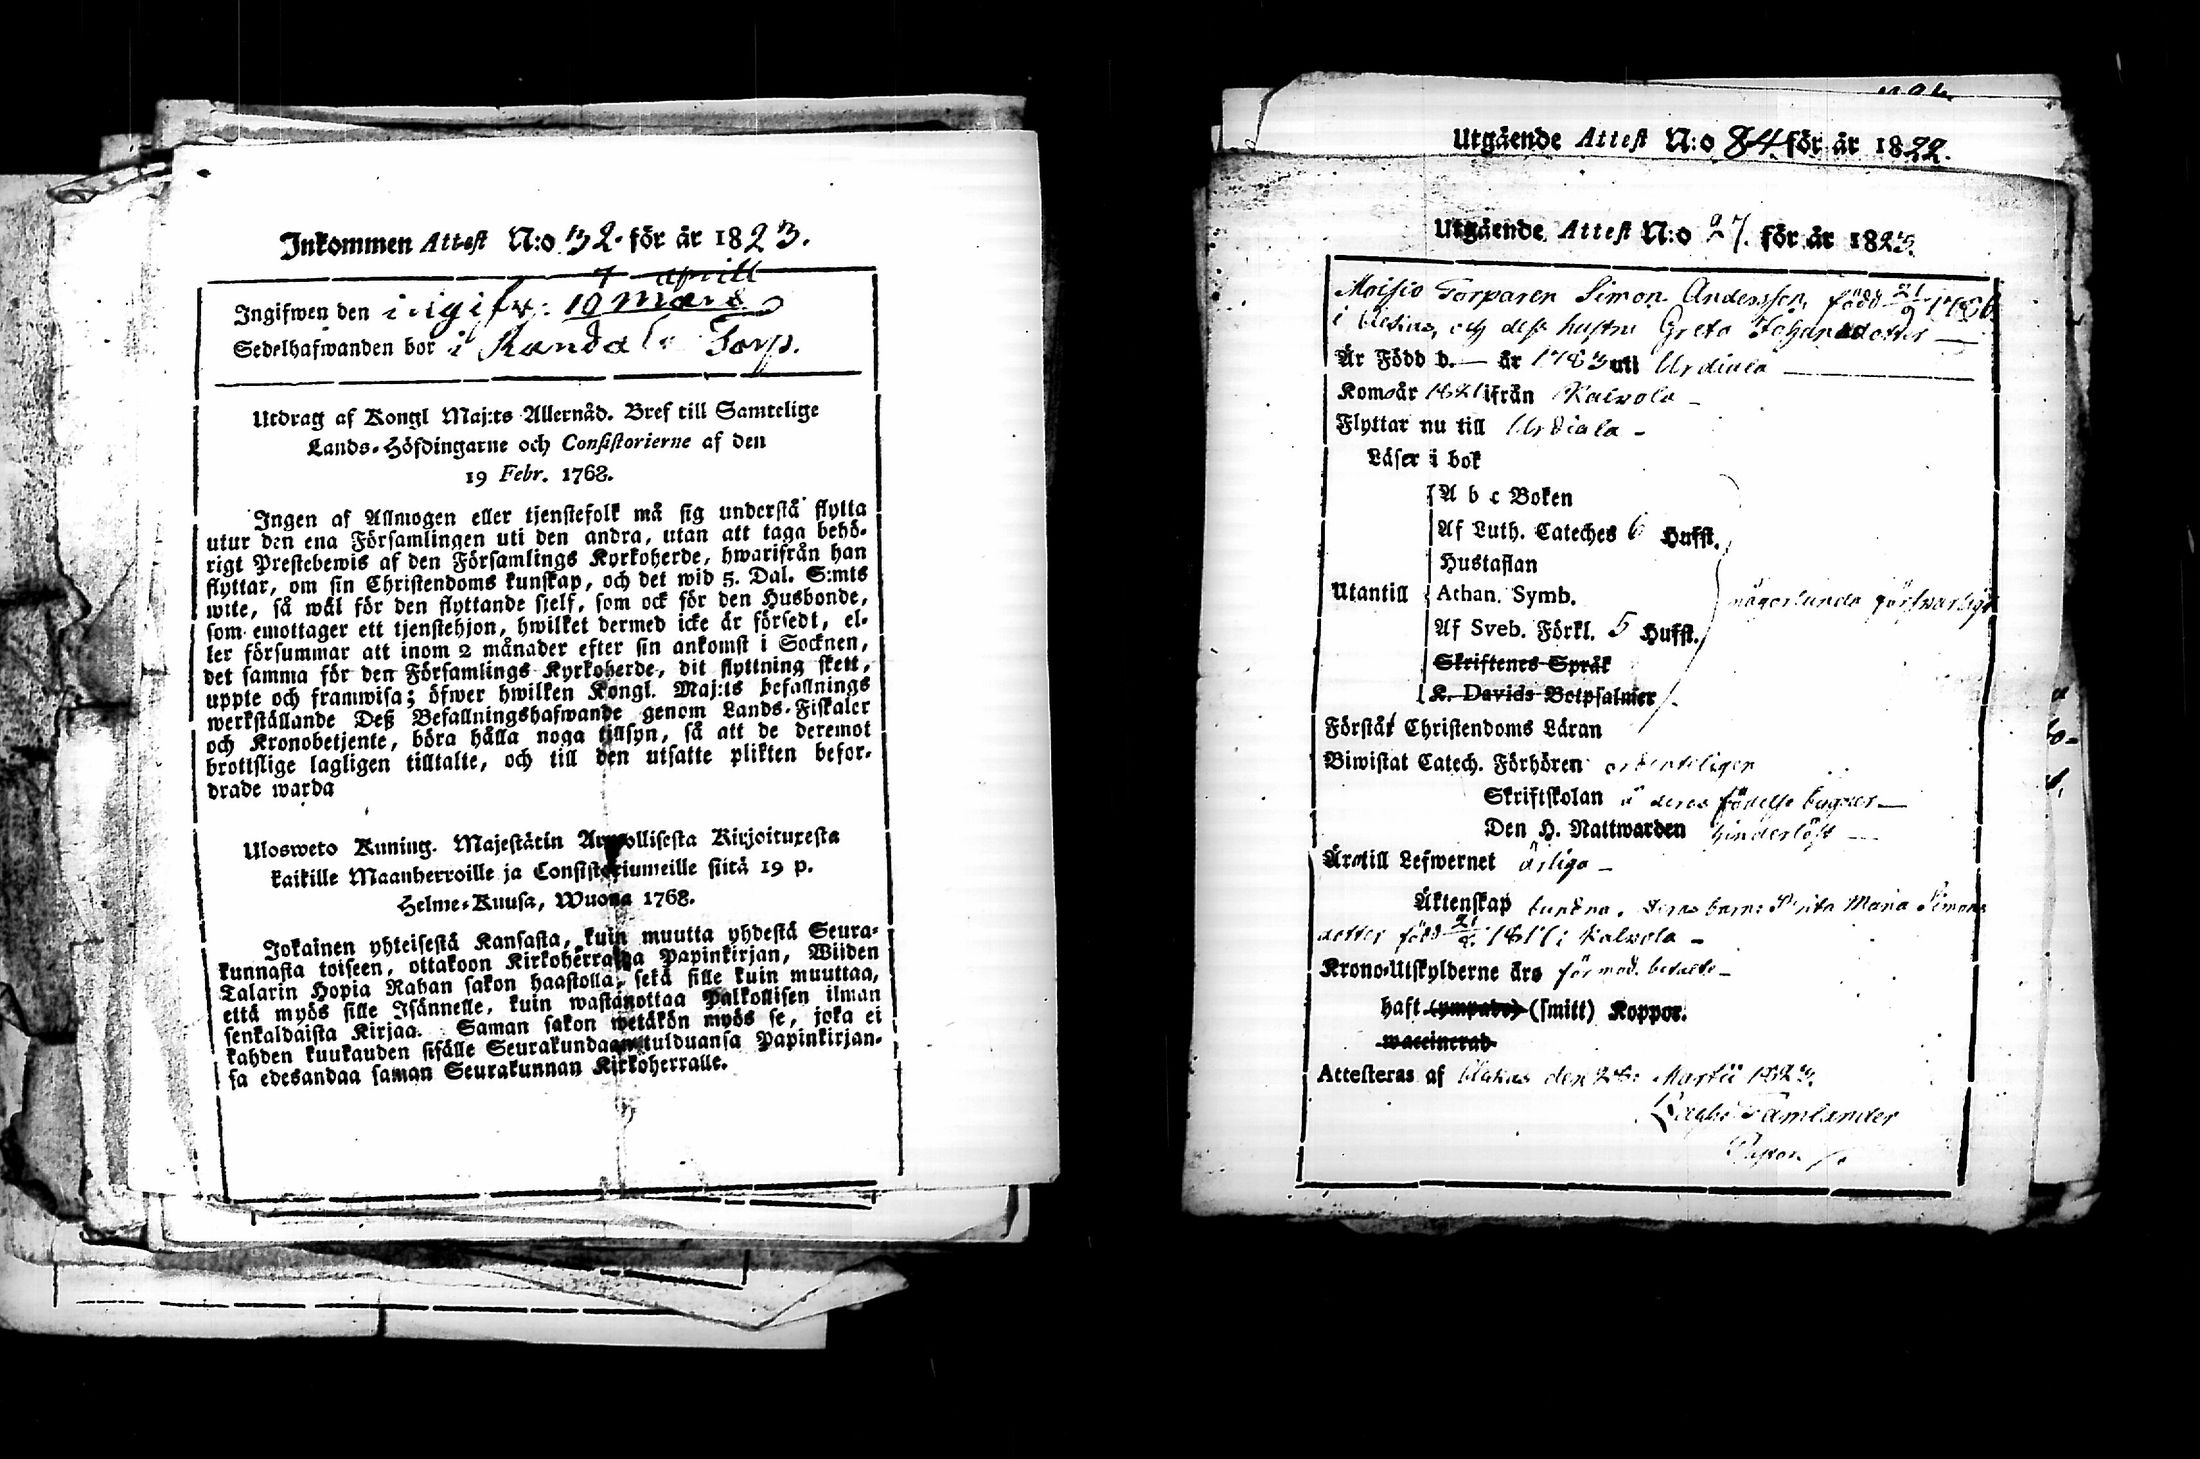 Inkommen Attest N:o 32. för år 1823.
7 aprill
Ingifwen den ingifv: 10 Mars
Sedelhafwanden bor i Kandala Torp.
Utdrag af Kongl Maj:ts Allernåd. Bref till Samtelige
Lands-Höfdingarne och Consistorierne af den
19 Febr. 1768.
Ingen af Allmogen eller tjenstefolk må sig understå flytta
utur den ena Församlingen uti den andra, utan att taga behö-
rigt Prestebewis af den Församlings Kyrkoherde, hwarifrån han
flyttar, om sin Christendoms kunskap, och det wid 5. Dal. S:mts
wite, så wäl för den flyttande sielf, som ock för den Husbonde,
som emottager ett tjenstehjon, hwilket dermed icke är försedt, el-
ler försummar att inom 2 månader efter sin ankomst i Socknen,
det samma för den Församlings Kyrkoherde, dit flyttning skett,
uppte och framwisa; öfwer hwilken Kongl. Maj:ts befallnings
werkställande Deß Befallningshafwande genom Lands-Fiskaler
och Kronobetjente, böra hålla noga tillsyn, så att de deremot
brottslige lagligen tilltalte, och till den utsatte plikten befor-
drade warda
Ulosweto Kuning. Majestätin Armollisesta Kirjoituxesta
kaikille Maanherroille ja Consistoriumeille siitä 19 p.
Helme-Kuusa, Wuonna 1768.
Jokainen yhteisestä Kansasta, kuin muutta yhdestä Seura-
kunnasta toiseen, ottakoon Kirkoherralda Papinkirjan, Wiiden
Talarin Hopia Rahan sakon haastolla, sekä sille kuin muuttaa,
että myös sille Isännelle, kuin wastanottaa Palkollisen ilman
senkaldaista Kirjaa. Saman sakon wetäkön myös se, joka ei
kahden kuukauden sisälle Seurakundaan tulduansa Papinkirjan-
sa edesandaa saman Seurakunnan Kirkoherralle.
Utgående Attest N:o 84 för år 1822.
Utgående Attest N:o 27. för år 1823.
Moisio Torparen Simon Andersson, född 21/9 1786
i Akkas, och dess hustru Greta Johansdotter —
Är Född d. — år 1783 uti Urdiala —
Kom år 1821 ifrån Kalvola —
Flyttar nu till Urdiala —
Läser i bok
A b c Boken
Af Luth. Cateches 6 Hufst.
Hustaflan
Utantill Athan. Symb. någorlunda försvarligt
Af Sveb. Förkl. 5 Hufst.
Skriftenes Språk
K. Davids Botpsalmer
Förstår Christendoms Läran
Biwistat Catech. Förhören ordenteligen
Skriftskolan å deras födelse bygder —
Den H. Nattwarden hinderlöst —
Äro till Lefwernet ärliga —
Äktenskap bundna. deras barn: Brita Maria Simons
dotter född 1817 i Kalvola —
Krono-Utskylderne äro förmod. betalte —
haft (ympade) (smitt) Koppor.
waccinerad
Attesteras af Akkas den 26: Martii 1823.
Tamlander
Pastor